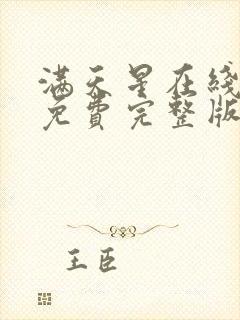 满天星在线
免费完整版
王臣